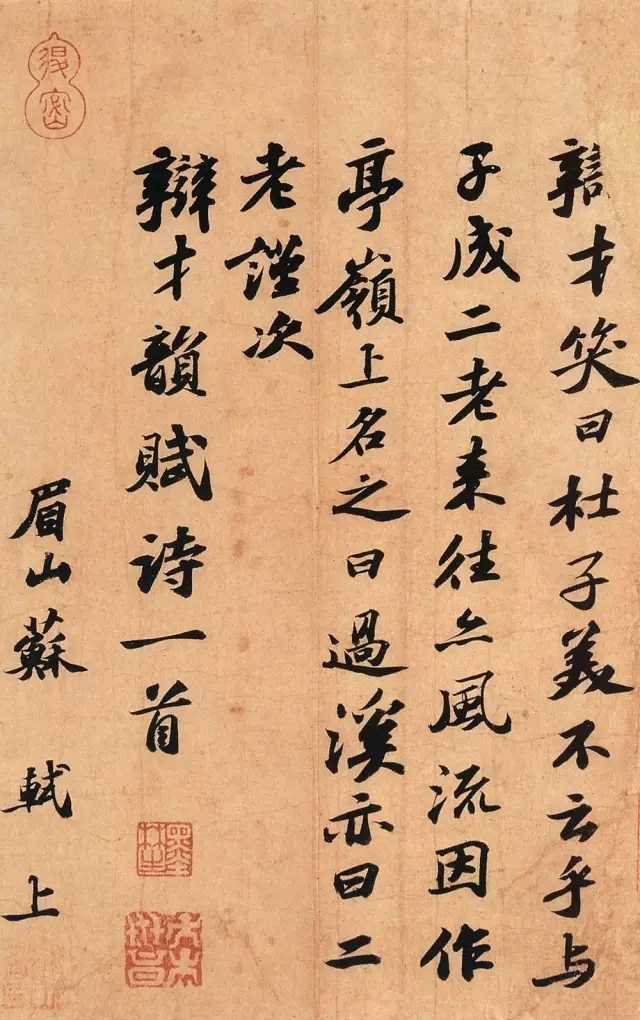 辯才笑曰杜子美不云乎与
子成二老来往亦風流因作
亭嶺上名之曰過溪亦曰二
老謹次
辯才韻賦诗一首
眉山蘇軾上